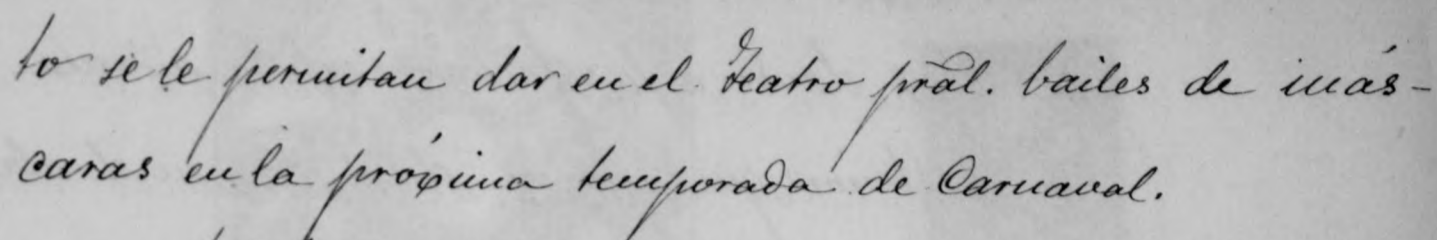 to se le permitan dar en el Teatro pral. bailes de más-
caras en la próxima temporada de Carnaval.